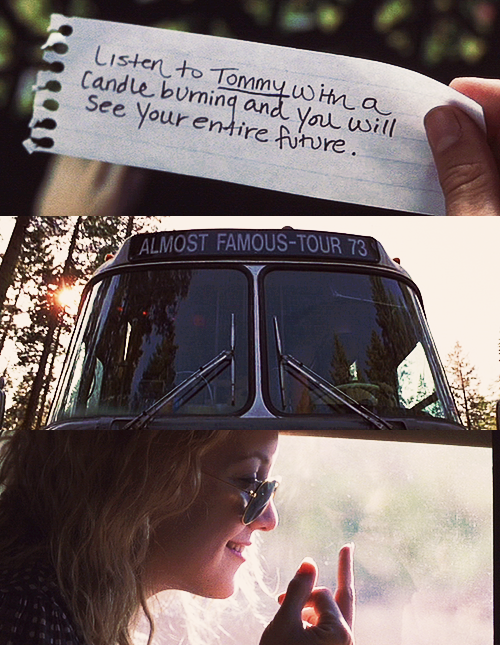 Listen to Tommy with a
Candle burning and you will
See your entire future.
ALMOST FAMOUS-TOUR 73